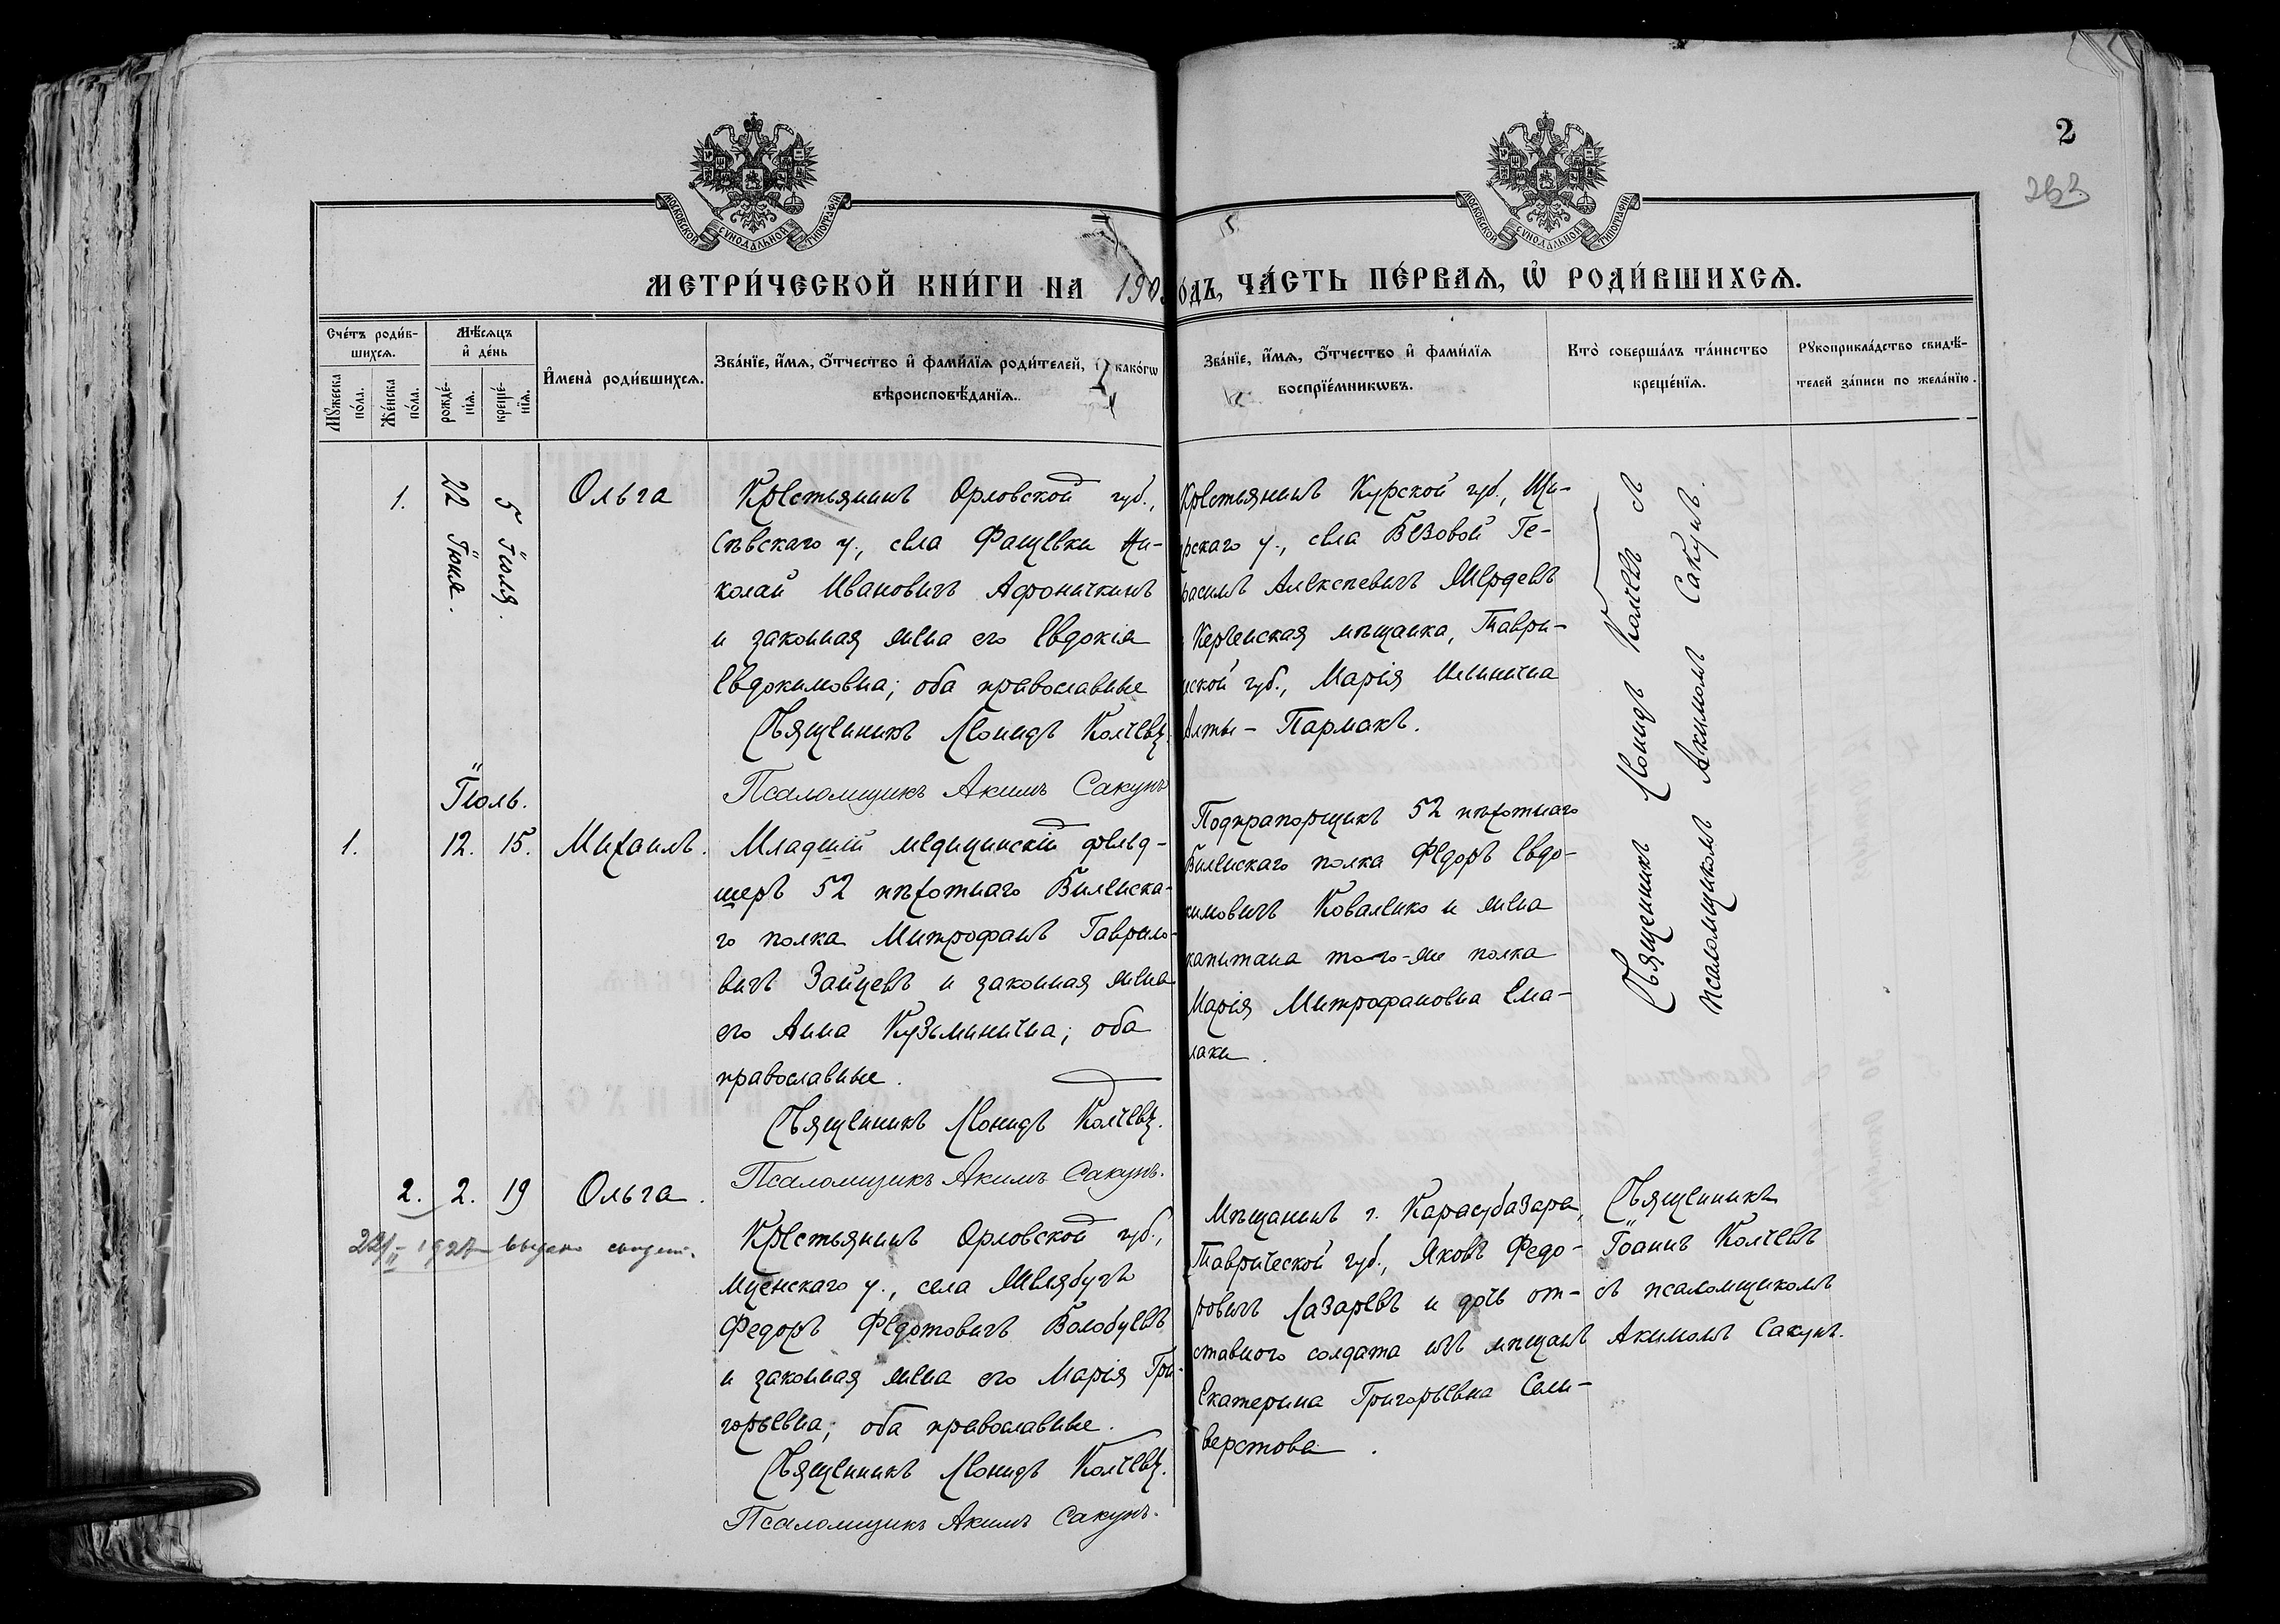 2
263
МОСКОВСКОЙ СѴНОДАЛЬНОЙ ТИПОГРАФІИ
МОСКОВСКОЙ СѴНОДАЛЬНОЙ ТИПОГРАФІИ
МЕТРИ́ЧЕСКОЙ КНИ́ГИ НА 190 о́дъ, ЧА́СТЬ ПЕ́РВАѦ, Ѡ РОДИ́ВШИХСѦ.
Сче́тъ роди́в-
шихсѧ.
Мꙋ́жеска
по́ла.
Же́нска
по́ла.
Мѣ́сѧцъ
и҆ де́нь
рожде́-
нїѧ.
креще́-
нїѧ.
И҆мена̀ роди́вшихсѧ.
Зва́нїе, и҆́мѧ, ѻ҆́тчество и҆ фами́лїѧ роди́телей, како́гѡ
вѣроисповѣ́данїѧ.
Зва́нїе, и҆́мѧ, ѻ҆́тчество и҆ фами́лїѧ
воспрїе́мникѡвъ.
Кто̀ соверша́лъ та́инство
креще́нїѧ.
Рꙋкоприкла́дство свидѣ́-
телей за́писи по жела́нїю.
1.
22 Іюня.
5 Іюля.
Ольга
Крестьянинъ Орловской губ.,
Сѣвскаго у., села Фащевки Ни-
колай Ивановичъ Афоничкинъ
и законная жена его Евдокія
Евдокимовна; оба православные
Священникъ Леонидъ Колчевъ.
Псаломщикъ Акимъ Сакунъ
Крестьянинъ Курской губ., Щи-
рскаго у., села Безовой Ге-
расимъ Алексѣевичъ Мердевъ
Керченская мѣщанка, Таври-
ской губ., Марія Ильинична
Алты-Пармакъ.
Священникъ Леонидъ Колчевъ съ
псаломщикомъ Акимомъ Сакунъ.
Іюль.
1.
12.
15.
Михаилъ.
Младшій медицинскій фельд-
шеръ 52 пѣхотнаго Виленска-
го полка Митрофанъ Гаврило-
вичъ Зайцевъ и законная жена
его Анна Кузьминична; оба
православные.
Священникъ Леонидъ Колчевъ.
Псаломщикъ Акимъ Сакунъ.
Подпрапорщикъ 52 пѣхотнаго
Виленскаго полка Федоръ Евдо-
кимовичъ Коваленко и жена
капитана того-же полка
Марія Митрофановна Ема-
лаки.
2.
2.
19
Ольга.
1927
выдано
Крестьянинъ Орловской губ.,
Мценскаго у., села Желябугъ
Федоръ Федотовичъ Волобуевъ
и законная жена его Марія Гри-
горьевна; оба православные.
Священникъ Леонидъ Колчевъ.
Псаломщикъ Акимъ Сакунъ.
Мѣщанинъ г. Карасубазара,
Таврической губ., Яковъ Федо-
ровичъ Лазаревъ и дочь от-
ставного солдата изъ мѣщанъ
Екатерина Григорьевна Сели-
верстова.
Священникъ
Іоаннъ Колчевъ
съ псаломщикомъ
Акимомъ Сакунъ.